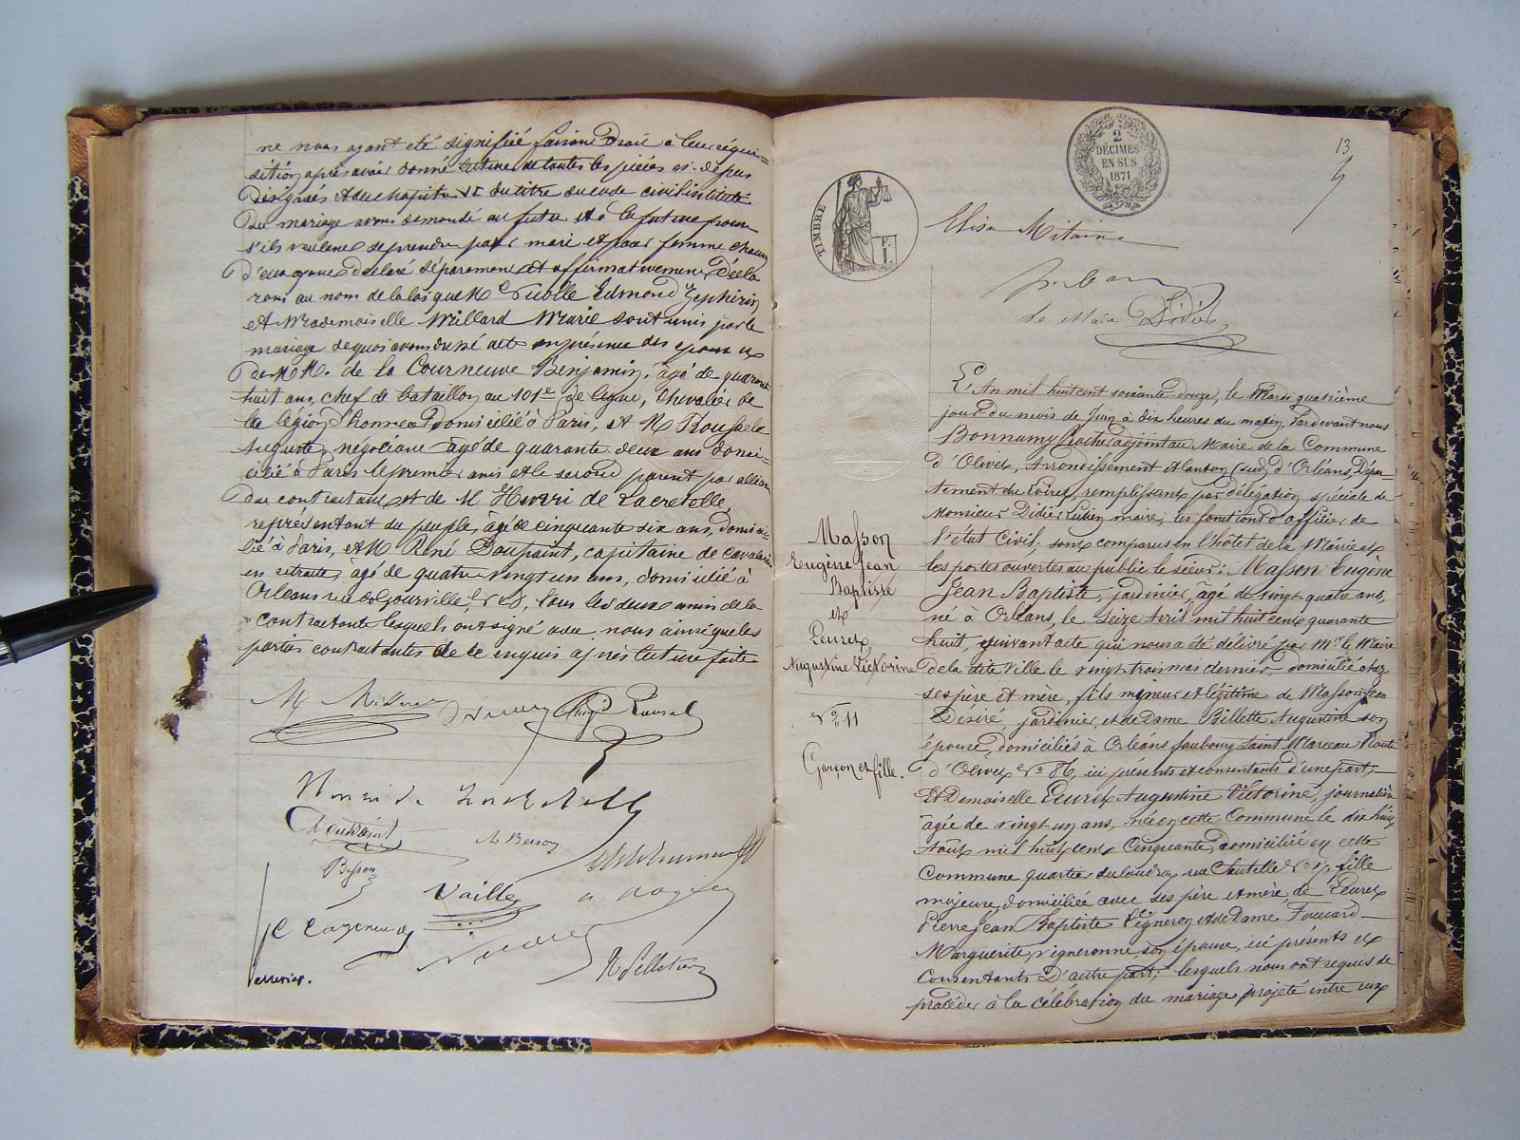 ne nous ayant été signifié faisant Droit à leur réqui-
sition après avoir donné lecture de toutes les pièces ci-dessus
Désignées et du chapitre VI du titre du code civil intitulé
Du mariage avons demandé au futur et à la future pour
s'ils veulent se prendre pour mari et pour femme chacun
d'eux ayant déclaré séparément et affirmativement, Décla
rons au nom de la loi que Mr Edmond Zéphirin
et Mademoiselle Millard Marie sont unis par le
mariage de quoi avons dressé acte en présence des époux et
de MM. de la Courneuve Benjamin, âgé de quarante
huit ans, chef de bataillon au 101e de ligne, Chevalier de
la légion d'honneur Domicilié à Paris, et M
Auguste, négociant âgé de quarante deux ans domi-
cilié à Paris le premier amis et le second parent par alliance
des contractants et de M Henri de Lacretelle,
représentant du peuple, âgé de cinquante six ans, domici-
lié à Paris, et M René Doupaint, capitaine de cavalerie
en retraite, âgé de quatre vingt un ans, domicilié à
Orléans rue de Gourville, No 8, tous les deux amis de la
contractante lesquels ont signé avec nous ainsi que les
parties contractantes de ce enquis après lecture faite
M Millard
Henri de Lacretelle
Besson
Vaille
Pelletier
13
2
DÉCIMES
EN SUS
1871
TIMBRE
Elisa Mitaine
Le Maire Didier
L'An mil huit cent soixante douze, le Mardi quatrième
jour du mois de Juin à dix heures du matin, Pardevant nous
Bonnamy adjoint au Maire de la Commune
d'Olivet, Arrondissement et canton (sud) d'Orléans, Dépar
tement du Loiret, remplissant par délégation spéciale de
Monsieur Didier Lucien maire, les fonctions d'officier de
l'état Civil, sont comparus en l'hôtel de la Mairie et
les portes ouvertes au public le sieur: Masson Eugène
Jean Baptiste, jardinier, âgé de vingt quatre ans,
né à Orléans, le seize Avril mil huit cent quarante
huit, suivant acte qui nous a été délivré par Mr le Maire
de la dite Ville le vingt trois mai dernier, domicilié chez
ses père et mère, fils mineur et légitime de Masson Jean
Désiré jardinier, et de Dame Billette Augustine son
épouse, domiciliés à Orléans faubourg Saint Marceau Route
d'Olivet No 86, ici présents et consentants d'une part;
Et Demoiselle Peuret Augustine Victorine, journalière
âgée de vingt un ans, née en cette Commune le dix huit
Août mil huit cent Cinquante, domiciliée en cette
Commune quartier du rue fille
majeure, domiciliée avec ses père et mère, de Peuret
Pierre Jean Baptiste Vigneron et de Dame Foucard
Marguerite, vigneronne, son épouse, ici présents et
Consentants D'autre part, lesquels nous ont requis de
procéder à la célébration du mariage projeté entre eux
Masson
Eugène Jean
Baptiste
et
Peuret
Augustine Victorine
No 11
Garçon et fille.